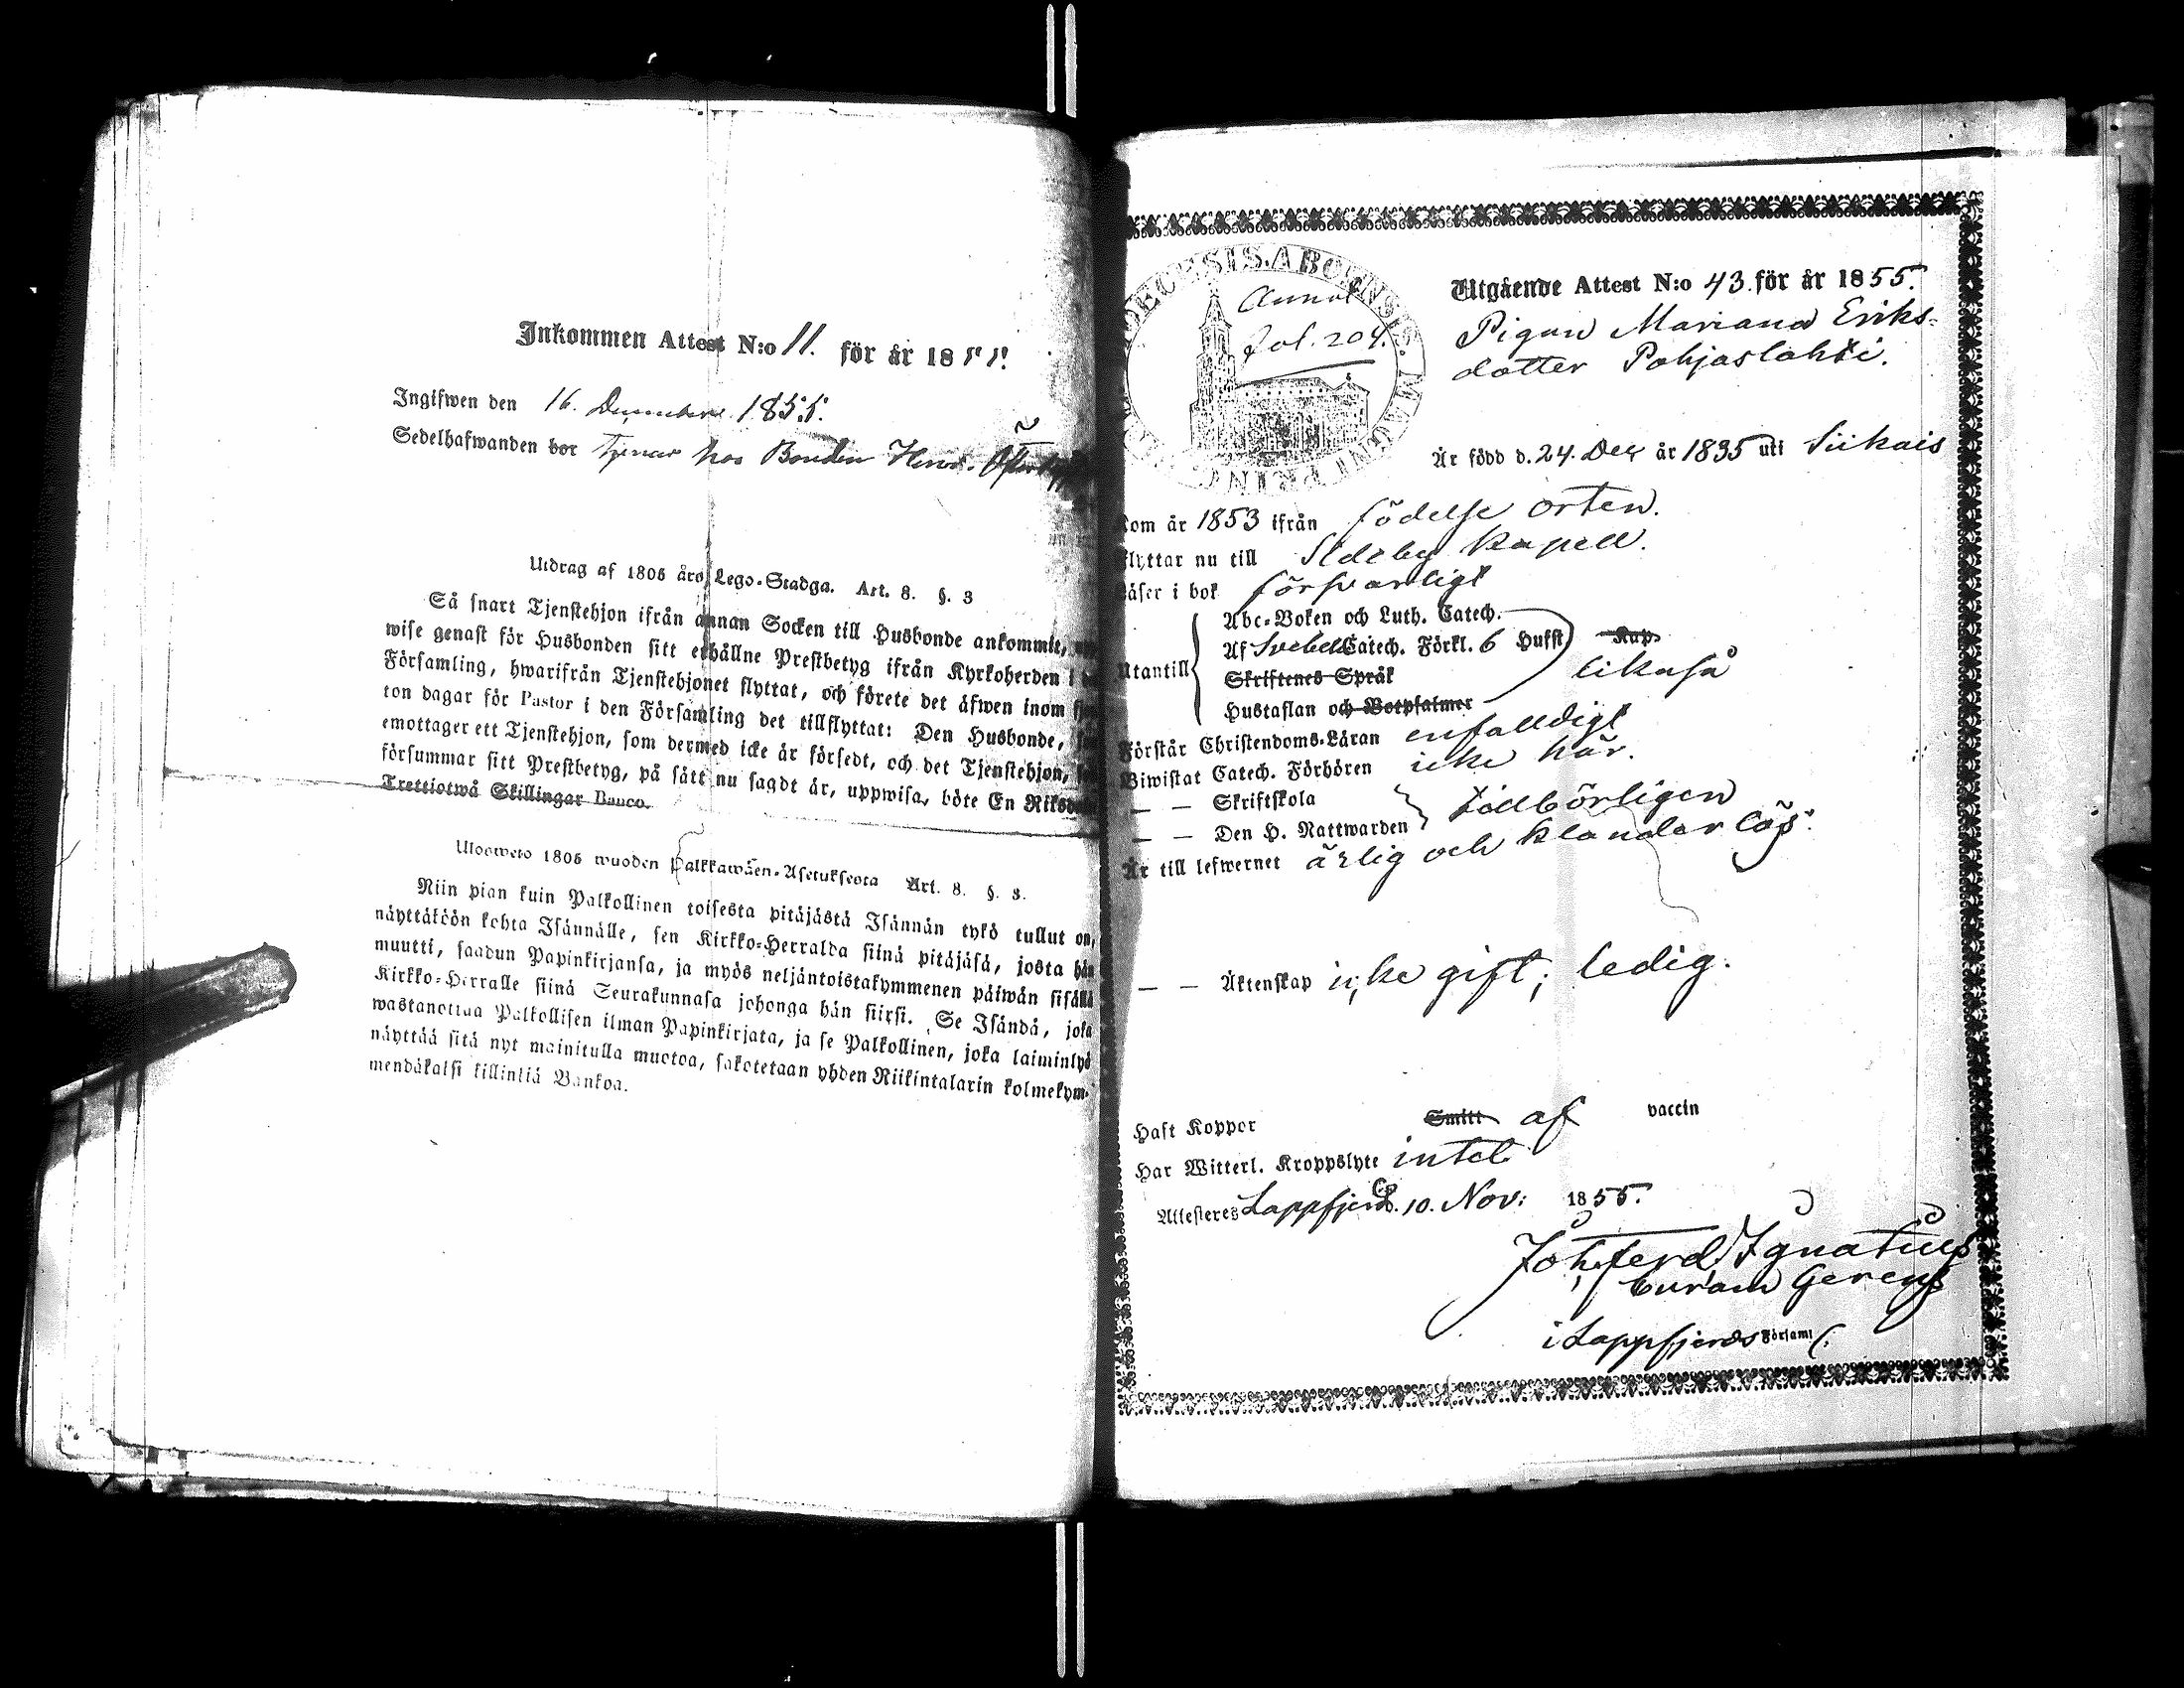 Inkommen Attest N:o 11. för år 1855.
Ingifwen den 16. Decembere 1855.
Sedelhafwanden bor tjenar hos Bonden Henr.
Utdrag af 1805 års Lego-Stadga. Art. 8. §. 3
Så snart Tjenstehjon ifrån annan Socken till Husbonde ankommit,
wise genast för Husbonden sitt erhållne Prestbetyg ifrån Kyrkoherden i
Församling, hwarifrån Tjenstehjonet flyttat, och förete det äfwen inom
ton dagar för Pastor i den Församling det tillflyttat: Den Husbonde,
emottager ett Tjenstehjon, som dermed icke är försedt, och det Tjenstehjon,
försummar sitt Prestbetyg, på sätt nu sagdt är, uppwisa, böte En
Trettiotwå Skillingar Banco.
Ulosweto 1805 wuoden Palkkawäen-Asetuksesta Art. 8. §. 3.
Niin pian kuin Palkollinen toisesta pitäjästä Isännän tykö tullut on,
näyttäköön kohta Isännälle, sen Kirkko-Herralda siinä pitäjäsä, josta hän
muutti, saadun Papinkirjansa, ja myös neljäntoistakymmenen päiwän sisällä
Kirkko-Herralle siinä Seurakunnasa johonga hän siirsi. Se Isändä, joka
wastanottaa Palkollisen ilman Papinkirjata, ja se Palkollinen, joka laiminlyö
näyttää sitä nyt mainitulla muotoa, sakotetaan yhden Riikintalarin kolmekym-
mendäkaksi killinkiä Bankoa.
DIOECESIS ABOENSIS
fol. 204.
Utgående Attest N:o 43 för år 1855.
Pigan Mariana Eriks-
dotter Pohjaslahti.
Är född d. 24. Dec år 1835 uti Siikais
kom år 1853 ifrån födelse orten.
flyttar nu till Sideby Kapell.
läser i bok försvarligt
Utantill
Abc-Boken och Luth. Catech.
Af Svebel Catech. Förkl. 6 Hufst Kap.
Skriftenes Språk
Hustaflan och Botpsalmer
likaså
Förstår Christendoms-Läran enfaldigt
Biwistat Catech. Förhören icke här.
— — Skriftskola
— — Den H. Nattwarden
tillbörligen
Är till lefwernet ärlig och klanderlös.
— — Äktenskap icke gift; ledig.
Haft Koppor Smitt af vaccin
Har Witterl. Kroppslyte intet
Attesteres Lappfjerd d. 10. Nov: 1855.
Joh. Ferd. Ignatius
Curam Gerens
i Lappfjerds Församl.